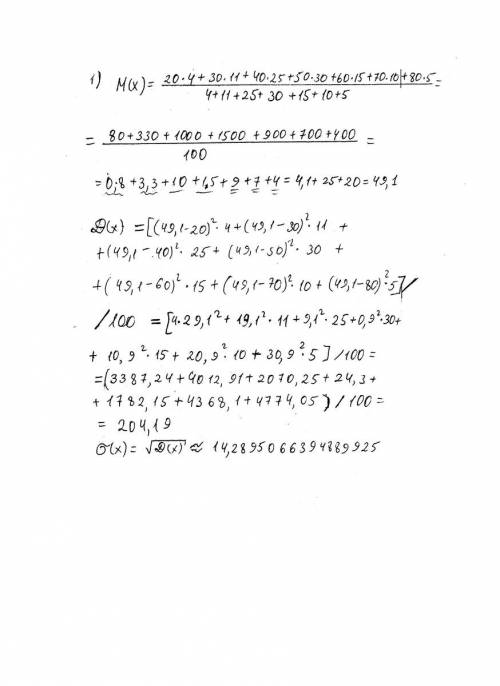 1) M(x) = 20·4+30·11+40·25+50·30+60·15+70·10+80·5 =
4+11+25+30+15+10+5
= 80+330+1000+1500+900+700+400 =
100
= 0,8+3,3+10+1,5+9+7+4 = 4,1+25+20 = 49,1
D(x) = [(49,1-20)²·4+(49,1-30)²·11 +
+(49,1-40)²·25+(49,1-50)²·30 +
+(49,1-60)²·15+(49,1-70)²·10+(49,1-80)²·5]/
/100 = [4·29,1²+19,1²·11+9,1²·25+0,9²·30+
+10,9²·15+20,9²·10+30,9²·5]/100 =
=(3387,24+4012,91+2070,25+24,3+
+1782,15+4368,1+4774,05)/100 =
= 204,19
σ(x) = √D(x) ≈ 14,2895066394889925